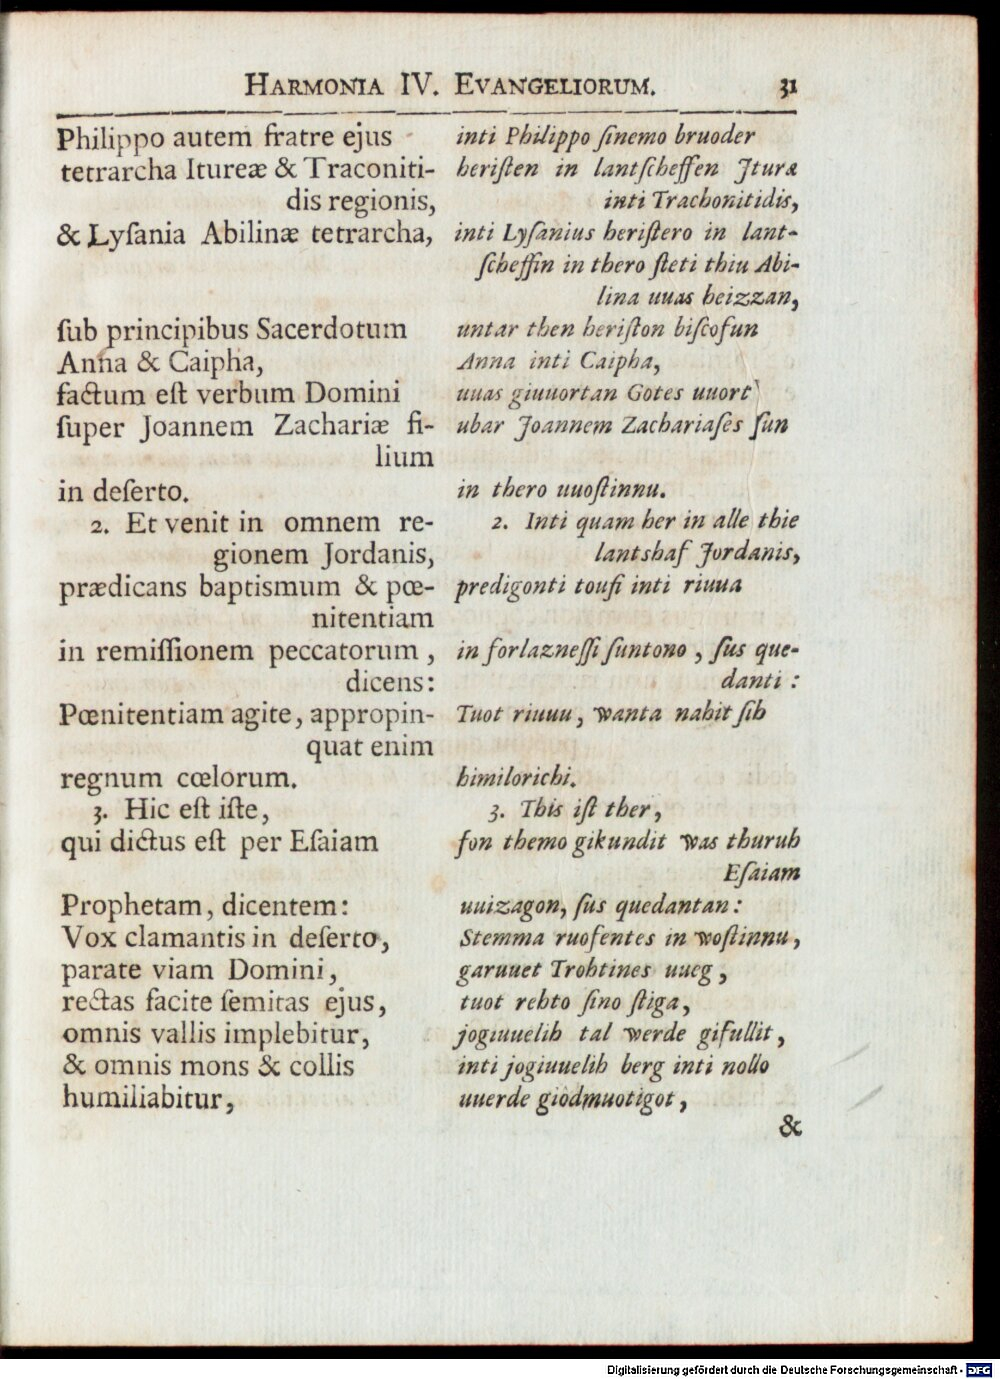 HARMONIA IV. EVANGELIORUM. 31
Philippo autem fratre ejus
tetrarcha Itureæ & Traconiti-
dis regionis,
& Lyſania Abilinæ tetrarcha,
ſub principibus Sacerdotum
Anna & Caipha,
factum eſt verbum Domini
ſuper Joannem Zachariæ fi-
lium
in deſerto.
2. Et venit in omnem re-
gionem Jordanis,
prædicans baptismum & pœ-
nitentiam
in remiſſionem peccatorum,
dicens:
Pœnitentiam agite, appropin-
quat enim
regnum cœlorum.
3. Hic eſt iſte,
qui dictus eſt per Eſaiam
Prophetam, dicentem:
Vox clamantis in deſerto,
parate viam Domini,
rectas facite ſemitas ejus,
omnis vallis implebitur,
& omnis mons & collis
humiliabitur,
inti Philippo ſinemo bruoder
heriſten in lantſcheffen Ituræ
inti Trachonitidis,
inti Lyſanius heriſtero in lant-
ſcheffin in thero ſteti thiu Abi-
lina uuas heizzan,
untar then heriſton biſcofun
Anna inti Caipha,
uuas giuuortan Gotes uuort
ubar Joannem Zachariaſes ſun
in thero uuoſtinnu.
2. Inti quam her in alle thie
lantshaf Jordanis,
predigonti toufi inti riuua
in forlazneſſi ſuntono, ſus que-
danti:
Tuot riuuu, wanta nahit ſih
himilorichi.
3. This iſt ther,
fon themo gikundit was thuruh
Eſaiam
uuizagon, ſus quedantan:
Stemma ruofentes in woſtinnu,
garuuet Trohtines uueg,
tuot rehto ſino ſtiga,
jogiuuelih tal werde gifullit,
inti jogiuuelih berg inti nollo
uuerde giodmuotigot,
&
Digitalisierung gefördert durch die Deutsche Forschungsgemeinschaft - DFG